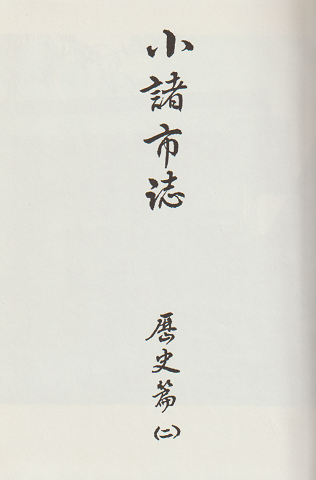 小諸市誌
歴史篇(二)